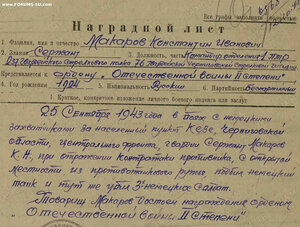 © www.FORUMS-SU.com
Все графы заполнять полностью
Наградной лист
1. Фамилия, имя и отчество Макаров Константин Иванович
2. Звание Сержант 3. Должность, часть Командир отделения ПТР
Гвардейского Стрелкового полка 76 Гвардейской
Представляется к ордену „Отечественной войны II степени"
4. Год рождения 1924 5. Национальность Русский 6. Партийность Беспартийный
I. Краткое, конкретное изложение личного боевого подвига или заслуг
25 Сентября 1943 года в боях с немецкими
захватчиками за населенный пункт Черниговской
области, Центрального фронта, гвардии Сержант Макаров
К.И. при отражении Контратаки противника, с открытой
местности из противотанкового ружья, подбил немецкий
танк и тут же убил 3х немецких Солдат.
Товарищ Макаров достоен награждения орденом
„Отечественной войны II Степени"